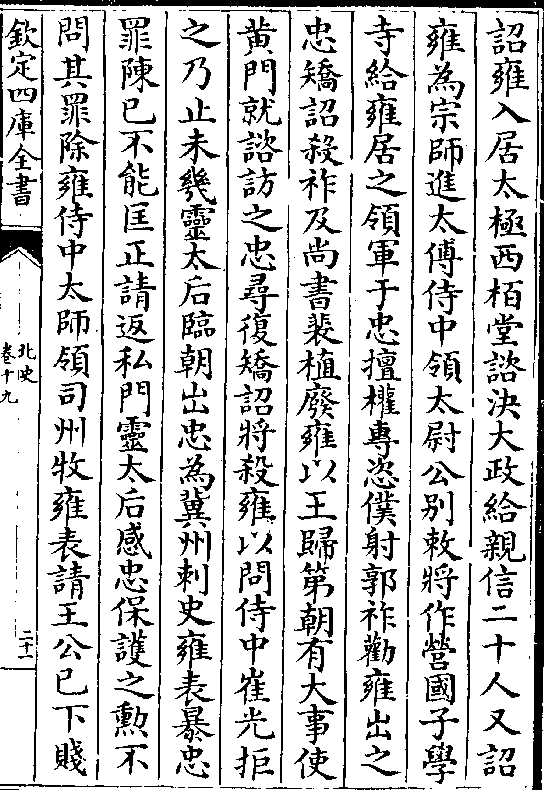 詔雍入居太極西栢堂諮決大政給親信二十人又詔
雍為宗師進太傅侍中領太尉公别敕將作營國子學
寺給雍居之領軍于忠擅權專恣僕射郭祚勸雍出之
忠矯詔殺祚及尚書裴植廢雍以王歸第朝有大事使
黄門就諮訪之忠尋復矯詔將殺雍以問侍中崔光拒
之乃止未幾靈太后臨朝出忠為冀州刺史雍表暴忠
罪陳已不能匡正請返私門靈太后感忠保護之勲不
問其罪除雍侍中太師領司州牧雍表請王公已下賤
欽定四庫全書
北史
卷十九
二十一